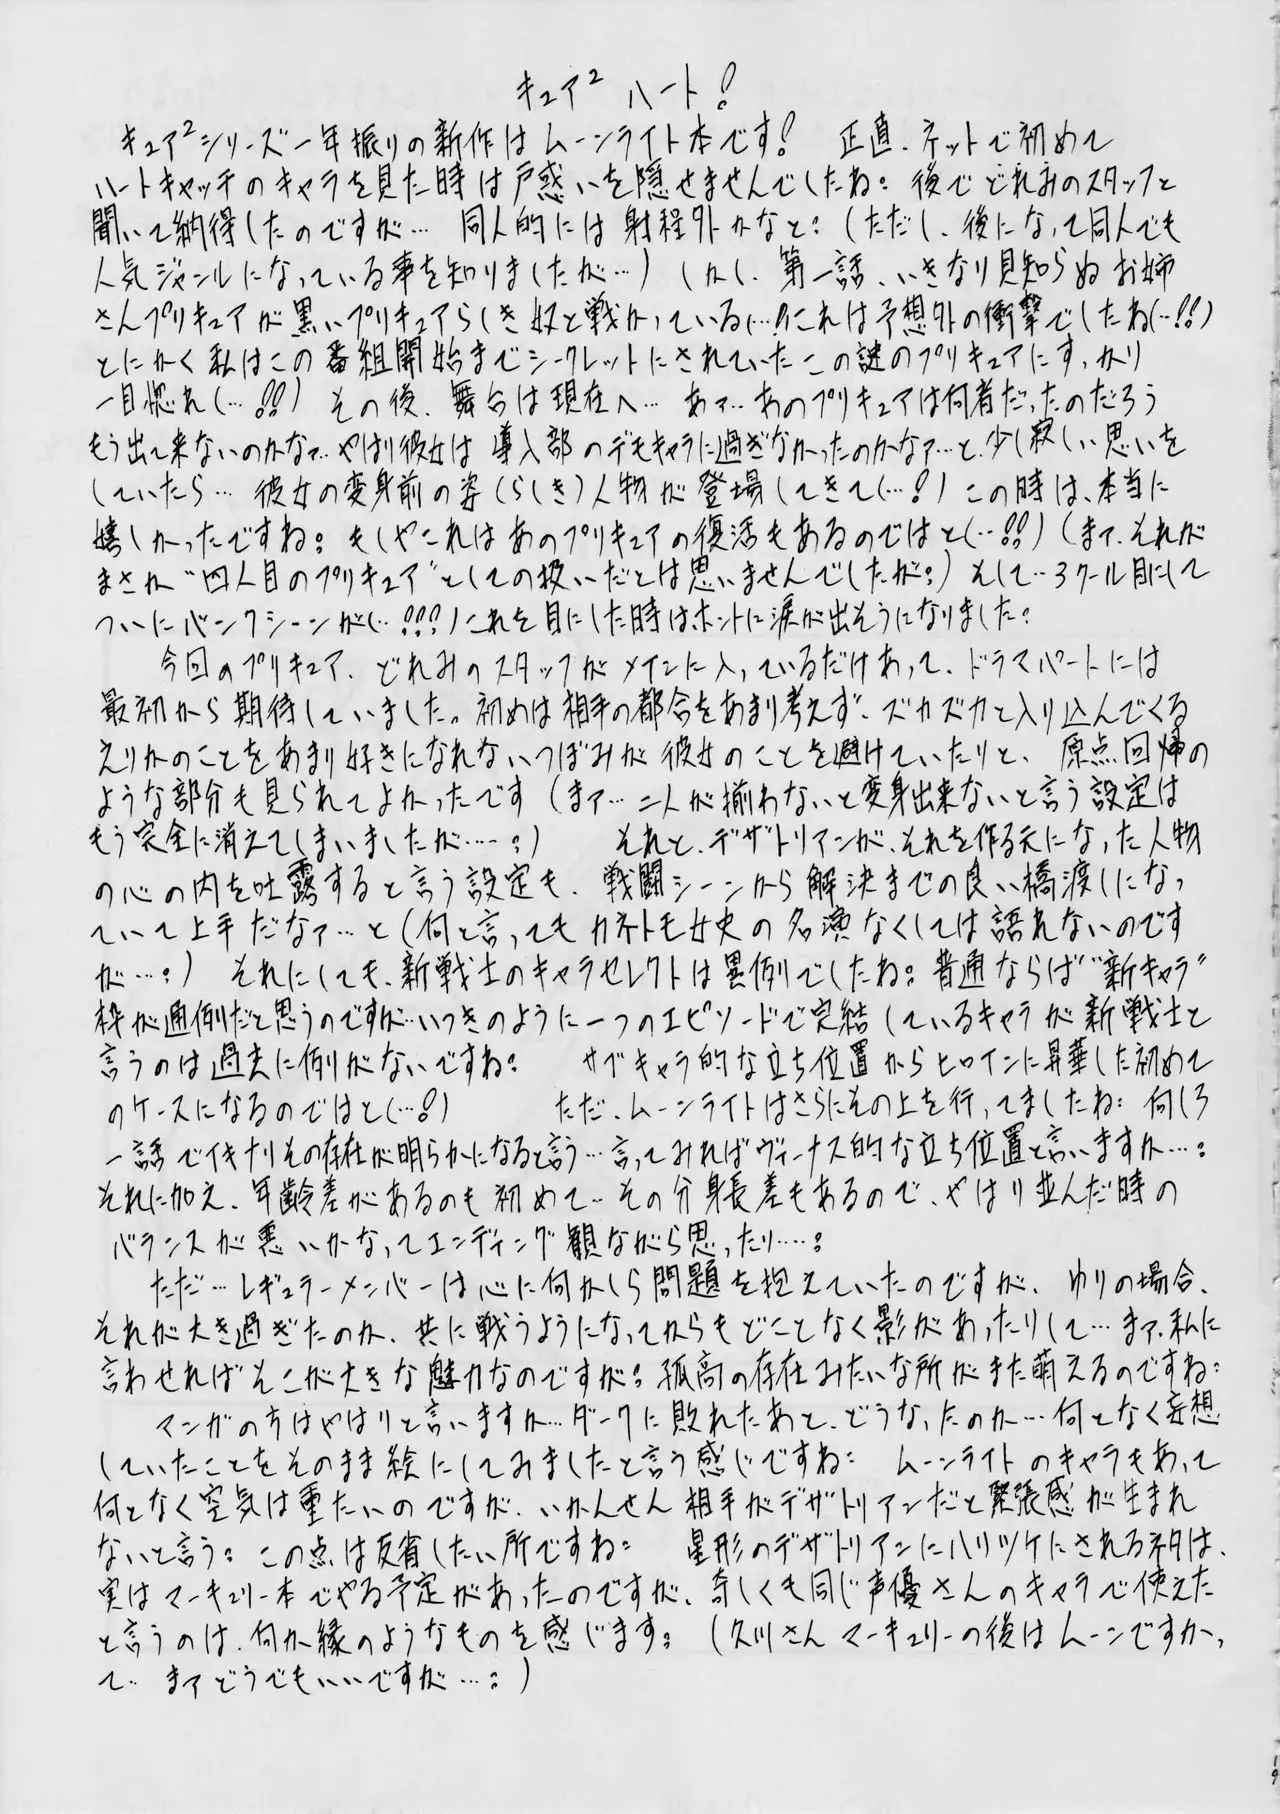 キュア² ハート!
キュア²シリーズ一年振りの新作はムーンライト本です! 正直、ネットで初めて
ハートキャッチのキャラを見た時は戸惑いを隠せませんでしたね: 後でどれみのスタッフと
聞いて納得したのですが… 同人的には射程外かなと:(ただし、後になって同人でも
人気ジャンルになっている事を知りましたが…) しかし、第一話、いきなり見知らぬお姉
さんプリキュアが黒いプリキュアらしき奴と戦かっている(…!)これは予想外の衝撃でしたね(…!!)
とにかく私はこの番組開始までシークレットにされていたこの謎のプリキュアにすっかり
一目惚れ(…!!) その後、舞台は現在へ… あァ…あのプリキュアは何者だったのだろう
もう出て来ないのかなァ…やはり彼女は導入部のデモキャラに過ぎなかったのかなァ…と、少し寂しい思いを
していたら… 彼女の変身前の姿(らしき)人物が登場してきて(…!) この時は、本当に
嬉しかったですね: もしやこれはあのプリキュアの復活もあるのではと(…!!)(まァ、それが
まさか“四人目のプリキュア”としての扱いだとは思いませんでしたが:) そして…3クール目にして
ついにバンクシーンが(…!!!)これを目にした時は、ホントに涙が出そうになりました:
今回のプリキュア、どれみのスタッフがメインに入っているだけあって、ドラマパートには
最初から期待していました。初めは相手の都合をあまり考えず、ズカズカと入り込んでくる
えりかのことをあまり好きになれないつぼみが彼女のことを避けていたりと、原点回帰の
ような部分も見られてよかったです(まァ…二人が揃わないと変身出来ないと言う設定は
もう完全に消えてしまいましたが……:) それと、デザトリアンが、それを作る元になった人物
の心の内を吐露すると言う設定も、戦闘シーンから解決までの良い橋渡しになっ
ていて上手だなァ…と(何と言ってもカネトモ女史の名演なくしては語れないのです
が…:) それにしても、新戦士のキャラセレクトは異例でしたね: 普通ならば“新キャラ”
枠が通例だと思うのですが…いつきのように一つのエピソードで完結しているキャラが新戦士と
言うのは過去に例がないですね: サブキャラ的な立ち位置からヒロインに昇華した初めて
のケースになるのではと(…!) ただ、ムーンライトはさらにその上を行ってましたね: 何しろ
一話でイキナリその存在が明らかになると言う…言ってみればヴィーナス的な立ち位置と言いますか…:
それに加え、年齢差があるのも初めて… その分身長差もあるので、やはり並んだ時の
バランスが悪いかなってエンディング観ながら思ったり……:
ただ…レギュラーメンバーは心に何かしら問題を抱えていたのですが、ゆりの場合、
それが大き過ぎたのか、共に戦うようになってからもどことなく影があったりして…まァ、私に
言わせればそこが大きな魅力なのですが: 孤高の存在みたいな所がまた萌えるのですね:
マンガの方はやはりと言いますか…ダークに敗れたあと、どうなったのか…何となく妄想
していたことをそのまま絵にしてみましたと言う感じですね: ムーンライトのキャラもあって
何となく空気は重たいのですが、いかんせん相手がデザトリアンだと緊張感が生まれ
ないと言う: この点は反省したい所ですね: 星形のデザトリアンにハリツケにされるネタは、
実はマーキュリー本でやる予定があったのですが、奇しくも同じ声優さんのキャラで使えた
と言うのは、何か縁のようなものを感じます: (久川さんマーキュリーの後はムーンですかっ
て… まァどうでもいいですが…:)